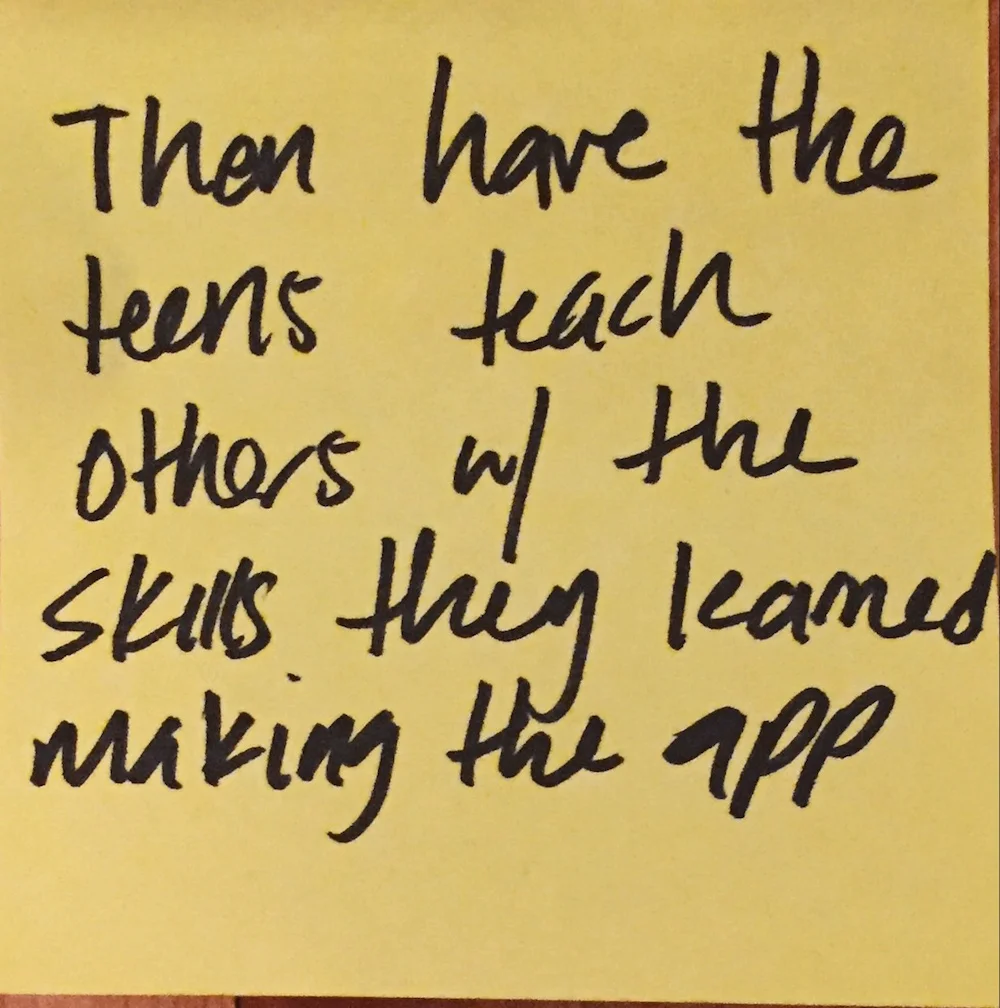 Then have the
teens teach
others w/ the
skills they learned
making the app